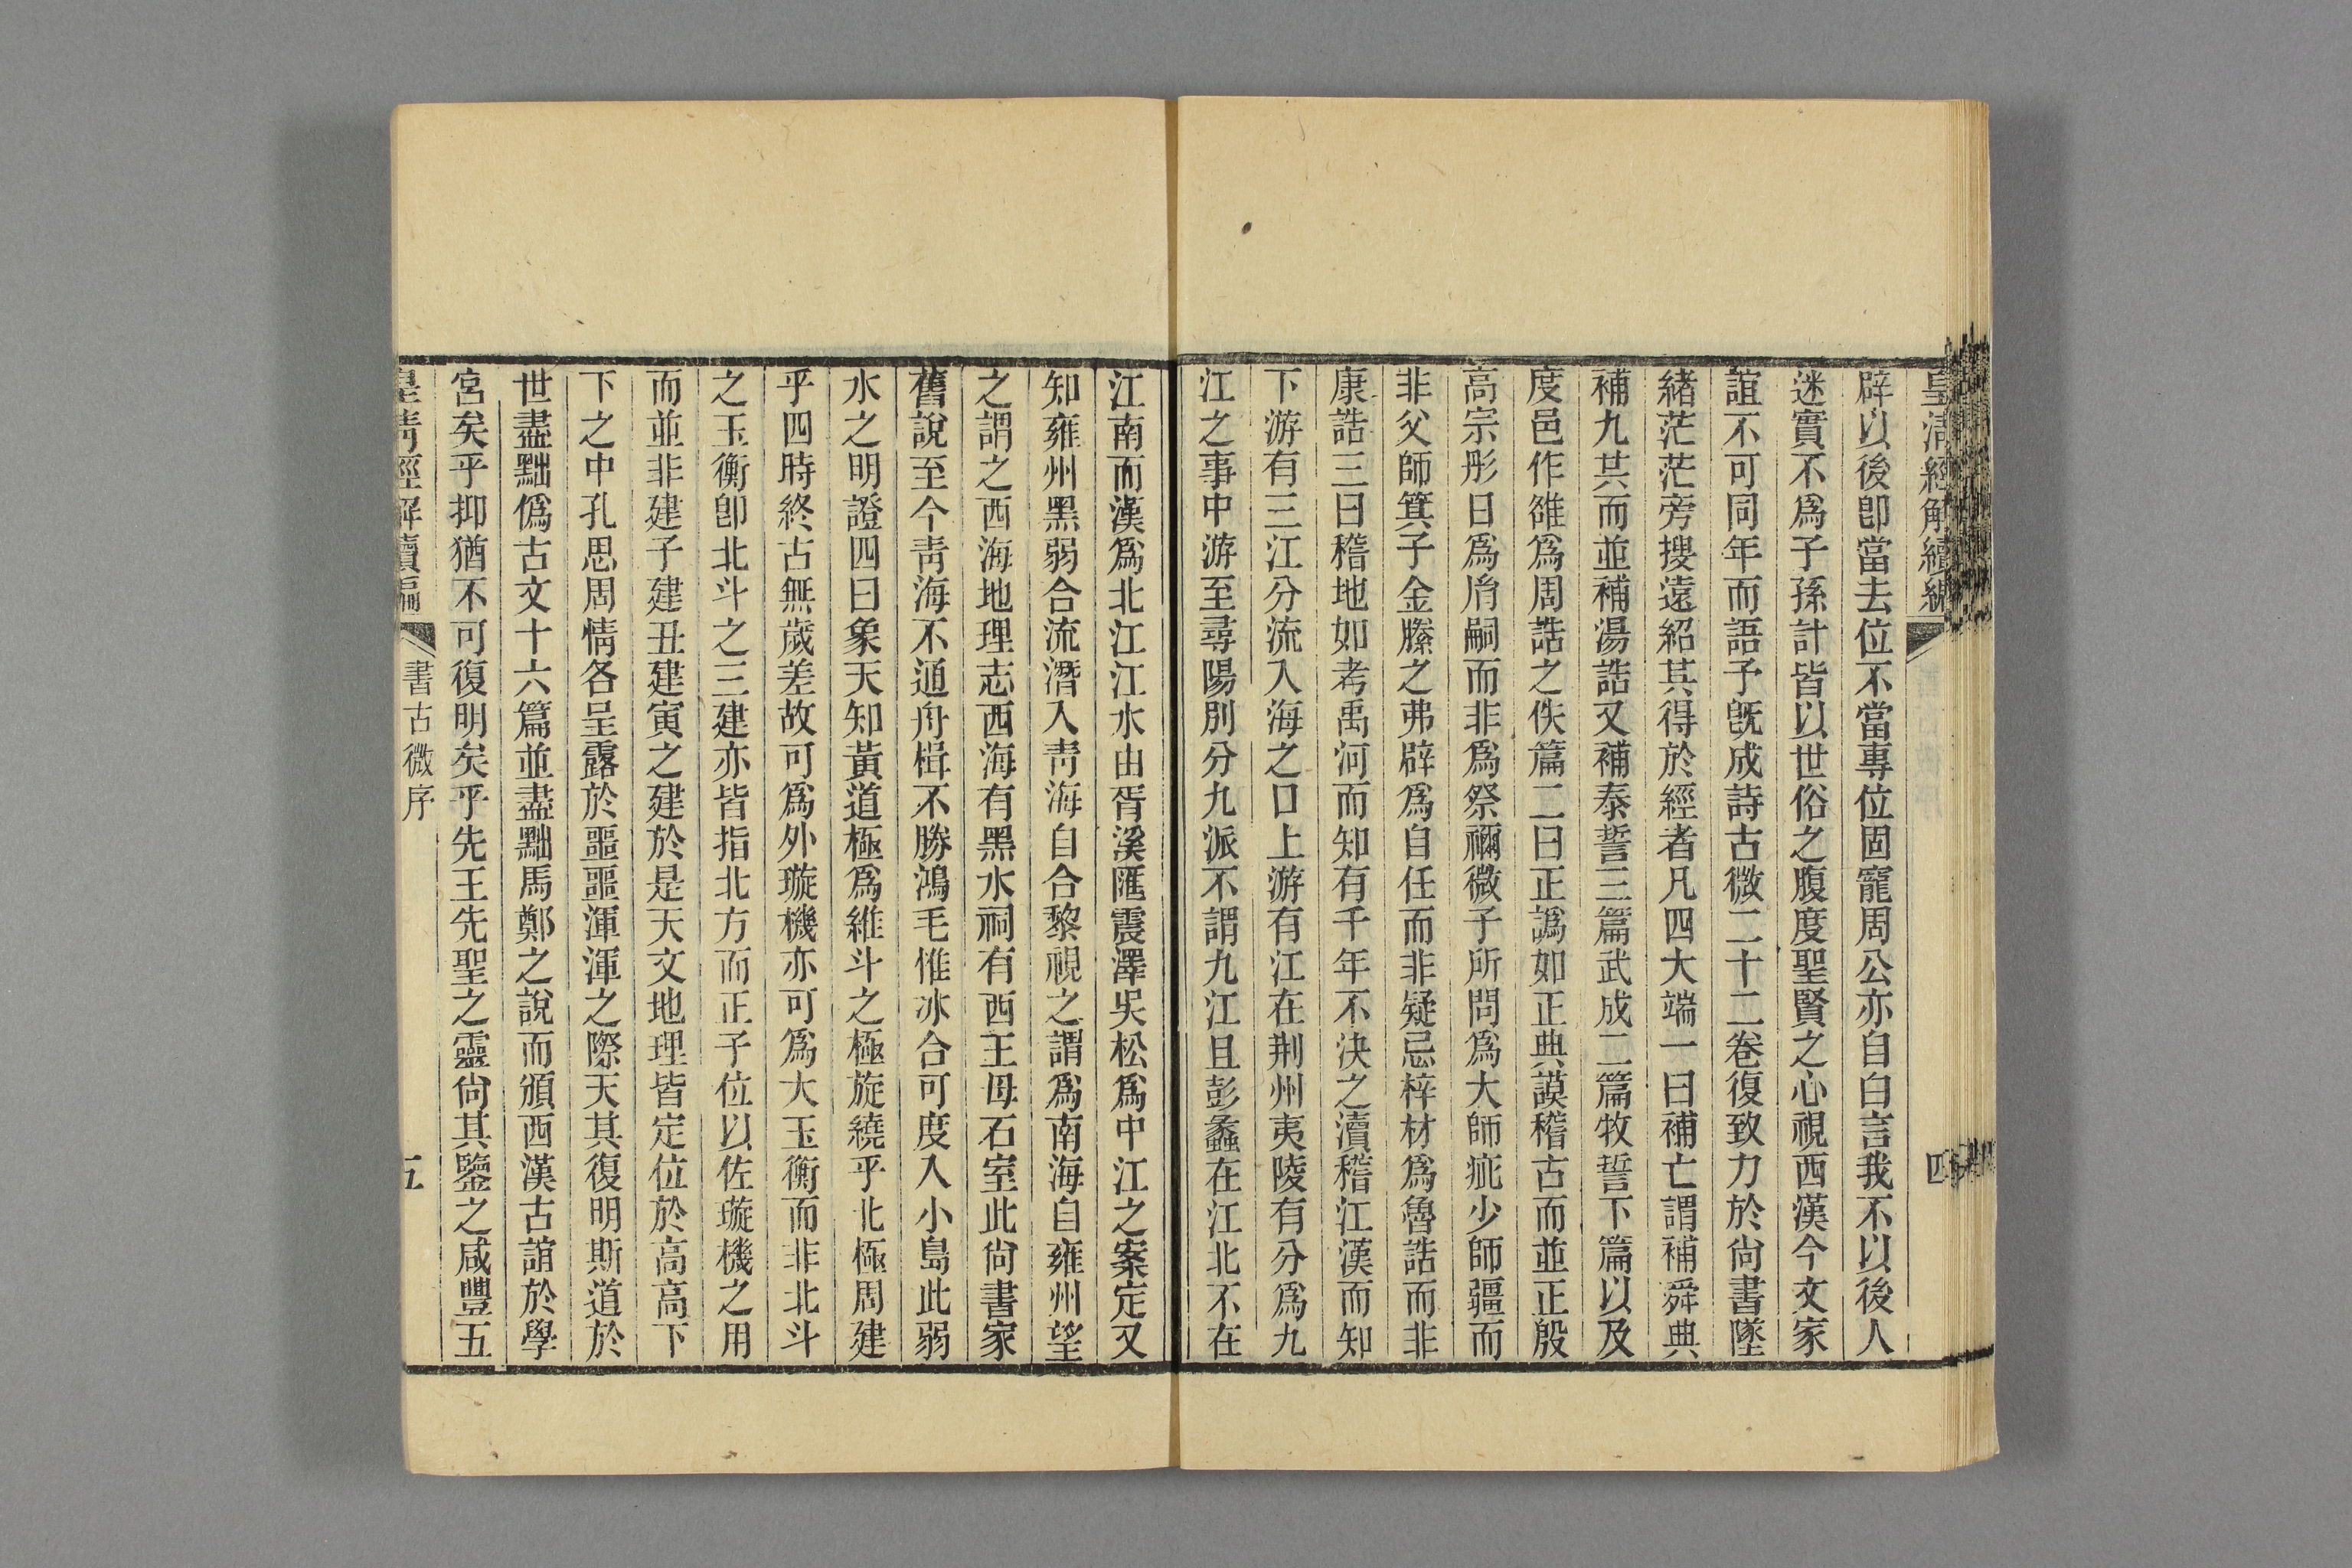 皇清經解續編 四
辟以後卽當去位不當專位固寵周公亦自白言我不以後人
迷實不爲子孫計皆以世俗之腹度聖賢之心視西漢今文家
誼不可同年而語予旣成詩古微二十二卷復致力於尙書墜
緒茫茫旁搜遠紹其得於經者凡四大端一曰補亡謂補舜典
補九共而並補湯誥又補泰誓三篇武成二篇牧誓下篇以及
度邑作雒爲周誥之佚篇二曰正譌如正典謨稽古而並正殷
高宗肜日爲胤嗣而非爲祭禰微子所問爲大師疵少師彊而
非父師箕子金縢之弗辟爲自任而非疑忌梓材爲魯誥而非
康誥三曰稽地如考禹河而知有千年不決之瀆稽江漢而知
下游有三江分流入海之口上游有江在荆州夷陵有分爲九
江之事中游至尋陽別分九派不謂九江且彭蠡在江北不在
江南而漢爲北江江水由胥溪匯震澤吳松爲中江之案定又
知雍州黑弱合流潛入靑海自合黎視之謂爲南海自雍州望
之謂之西海地理志西海有黑水祠有西王母石室此尙書家
舊說至今靑海不通舟楫不勝鴻毛惟冰合可度入小島此弱
水之明證四曰象天知黃道極爲維斗之極旋繞乎北極周建
乎四時終古無歲差故可爲外璇機亦可爲大玉衡而非北斗
之玉衡卽北斗之三建亦皆指北方而正子位以佐璇機之用
而並非建子建丑建寅之建於是天文地理皆定位於高高下
下之中孔思周情各呈露於噩噩渾渾之際天其復明斯道於
世盡黜僞古文十六篇並盡黜馬鄭之說而頒西漢古誼於學
宮矣乎抑猶不可復明矣乎先王先聖之靈尙其鑒之咸豐五
皇清經解續編 書古微序 五